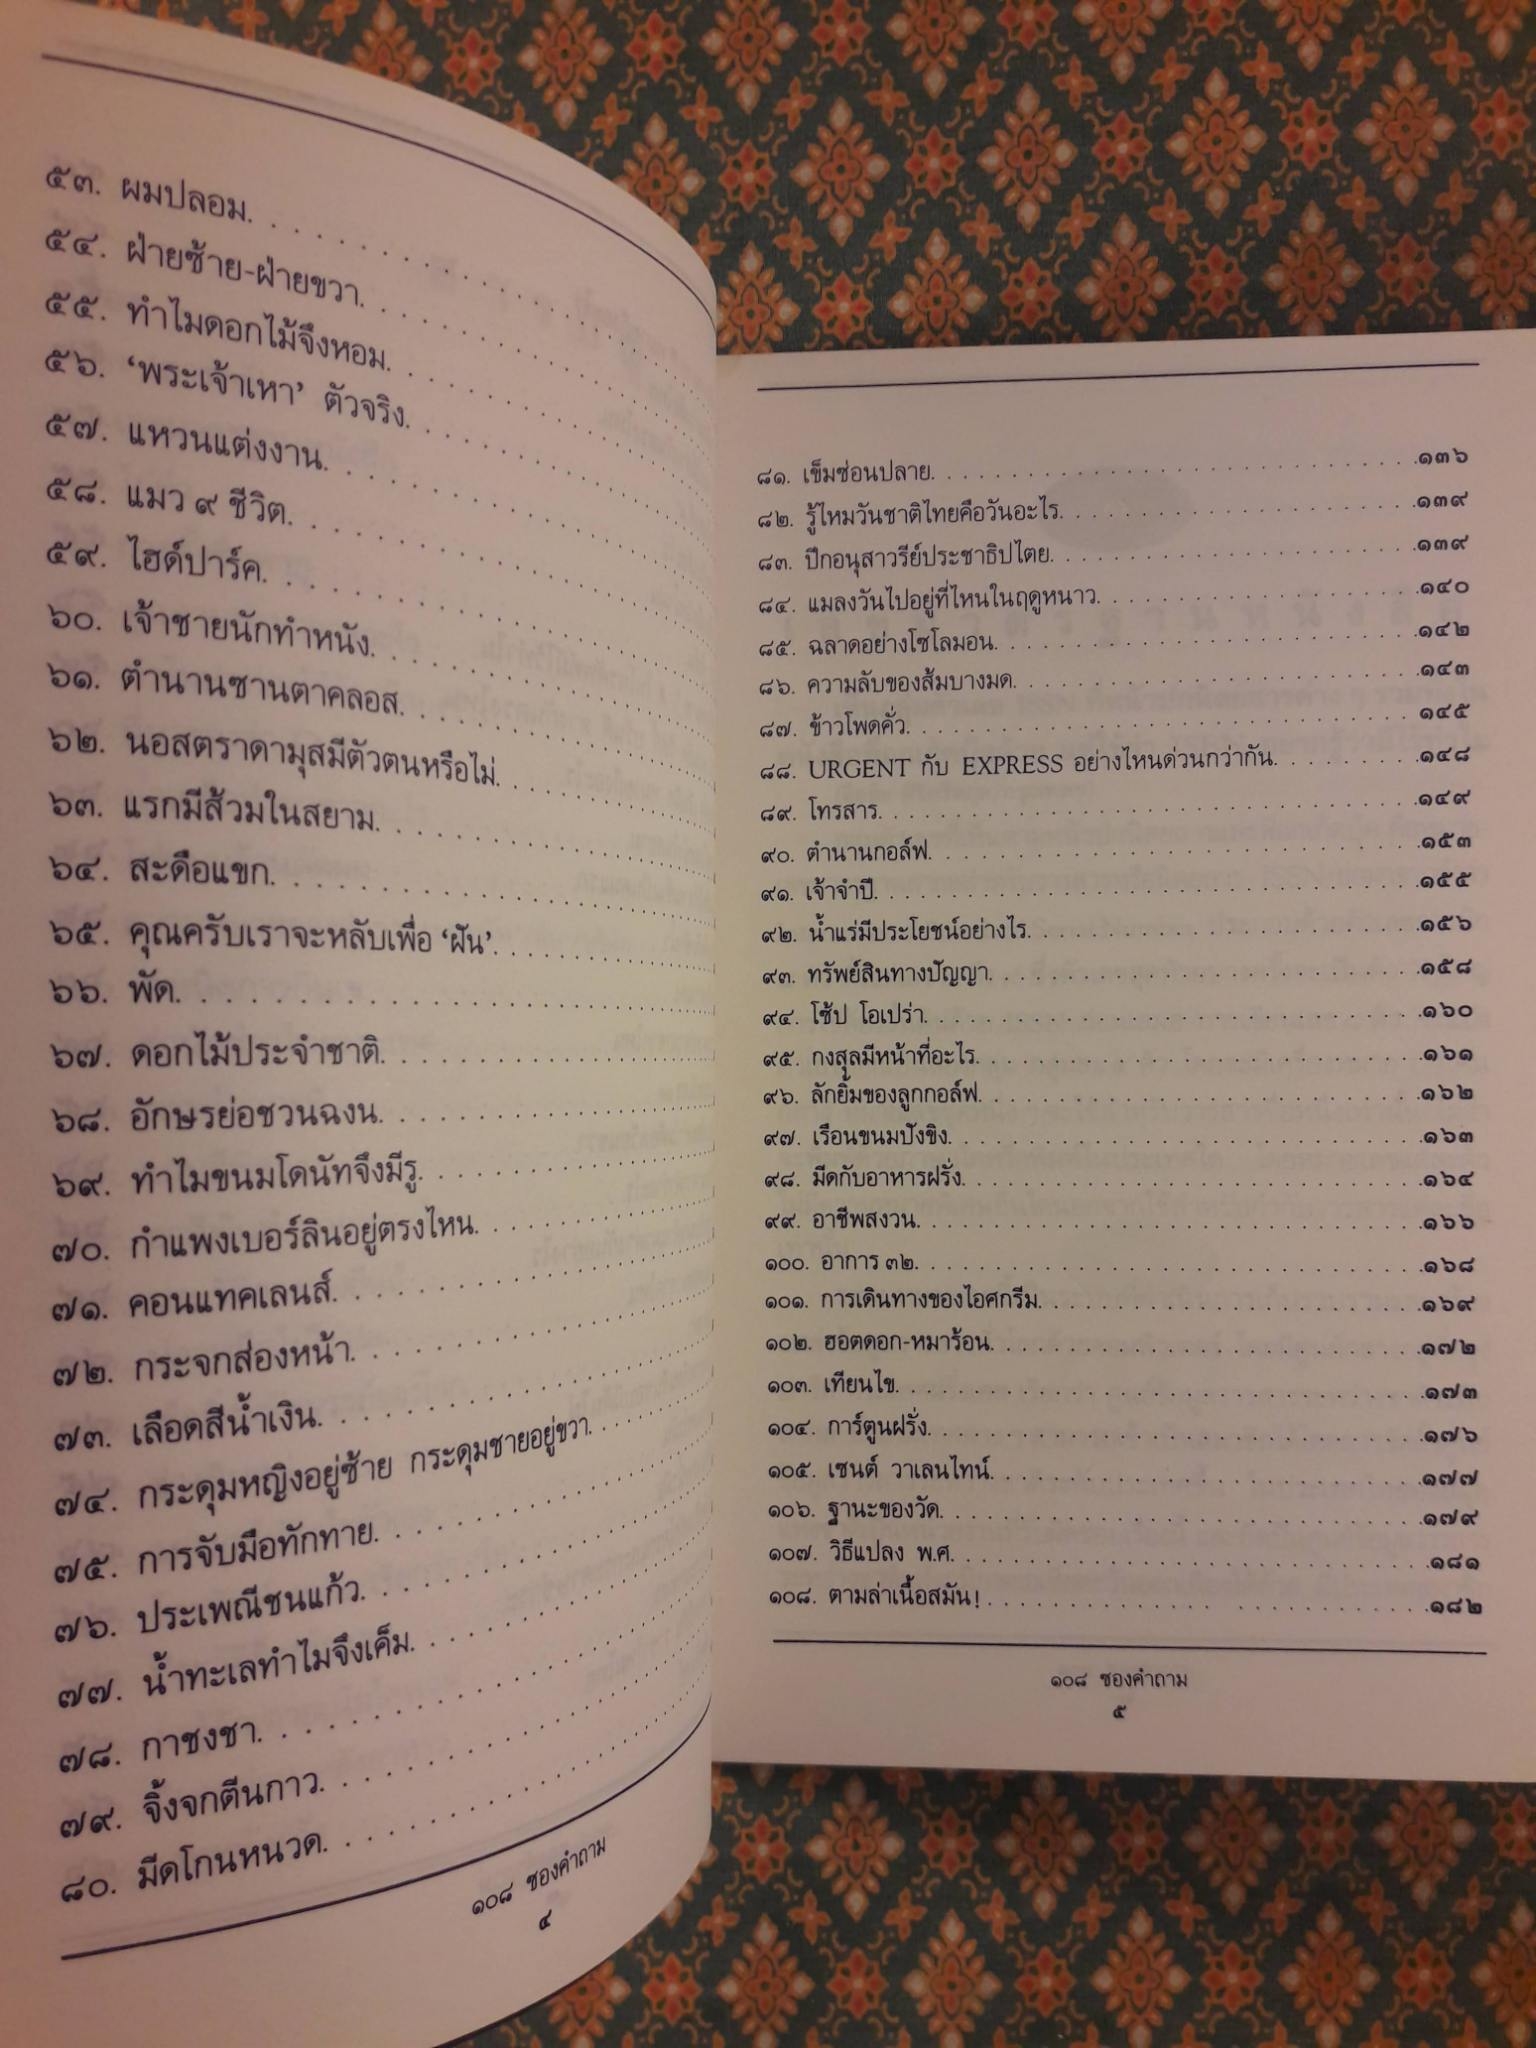 ๕๓. ผมปลอม
๕๔. ฝ่ายซ้าย-ฝ่ายขวา
๕๕. ทำไมดอกไม้จึงหอม
๕๖. ‘พระเจ้าเหา’ ตัวจริง
๕๗. แหวนแต่งงาน
๕๘. แมว ๙ ชีวิต
๕๙. ไฮด์ปาร์ค
๖๐. เจ้าชายนักทำหนัง
๖๑. ตำนานซานตาคลอส
๖๒. นอสตราดามุสมีตัวตนหรือไม่
๖๓. แรกมีส้วมในสยาม
๖๔. สะดือแขก
๖๕. คุณครับเราจะหลับเพื่อ ‘ฝัน’
๖๖. พัด
๖๗. ดอกไม้ประจำชาติ
๖๘. อักษรย่อชวนฉงน
๖๙. ทำไมขนมโดนัทจึงมีรู
๗๐. กำแพงเบอร์ลินอยู่ตรงไหน
๗๑. คอนแทคเลนส์
๗๒. กระจกส่องหน้า
๗๓. เลือดสีน้ำเงิน
๗๔. กระดุมหญิงอยู่ซ้าย กระดุมชายอยู่ขวา
๗๕. การจับมือทักทาย
๗๖. ประเพณีชนแก้ว
๗๗. น้ำทะเลทำไมจึงเค็ม
๗๘. กาชงชา
๗๙. จิ้งจกตีนกาว
๘๐. มีดโกนหนวด
๑๐๘ ซองคำถาม
๔
๘๑. เข็มซ่อนปลาย ๑๓๖
๘๒. รู้ไหมวันชาติไทยคือวันอะไร ๑๓๙
๘๓. ปีกอนุสาวรีย์ประชาธิปไตย ๑๓๙
๘๔. แมลงวันไปอยู่ที่ไหนในฤดูหนาว ๑๔๐
๘๕. ฉลาดอย่างโซโลมอน ๑๔๒
๘๖. ความลับของส้มบางมด ๑๔๓
๘๗. ข้าวโพดคั่ว ๑๔๕
๘๘. URGENT กับ EXPRESS อย่างไหนด่วนกว่ากัน ๑๔๘
๘๙. โทรสาร ๑๔๙
๙๐. ตำนานกอล์ฟ ๑๕๓
๙๑. เจ้าจำปี ๑๕๕
๙๒. น้ำแร่มีประโยชน์อย่างไร ๑๕๖
๙๓. ทรัพย์สินทางปัญญา ๑๕๘
๙๔. โซ้ป โอเปร่า ๑๖๐
๙๕. กงสุลมีหน้าที่อะไร ๑๖๑
๙๖. ลักยิ้มของลูกกอล์ฟ ๑๖๒
๙๗. เรือนขนมปังขิง ๑๖๓
๙๘. มีดกับอาหารฝรั่ง ๑๖๔
๙๙. อาชีพสงวน ๑๖๖
๑๐๐. อาการ ๓๒ ๑๖๘
๑๐๑. การเดินทางของไอศกรีม ๑๖๙
๑๐๒. ฮอตดอก-หมาร้อน ๑๗๒
๑๐๓. เทียนไข ๑๗๓
๑๐๔. การ์ตูนฝรั่ง ๑๗๖
๑๐๕. เซนต์ วาเลนไทน์ ๑๗๗
๑๐๖. ฐานะของวัด ๑๗๙
๑๐๗. วิธีแปลง พ.ศ. ๑๘๑
๑๐๘. ตามล่าเนื้อสมัน! ๑๘๒
๑๐๘ ซองคำถาม
๕